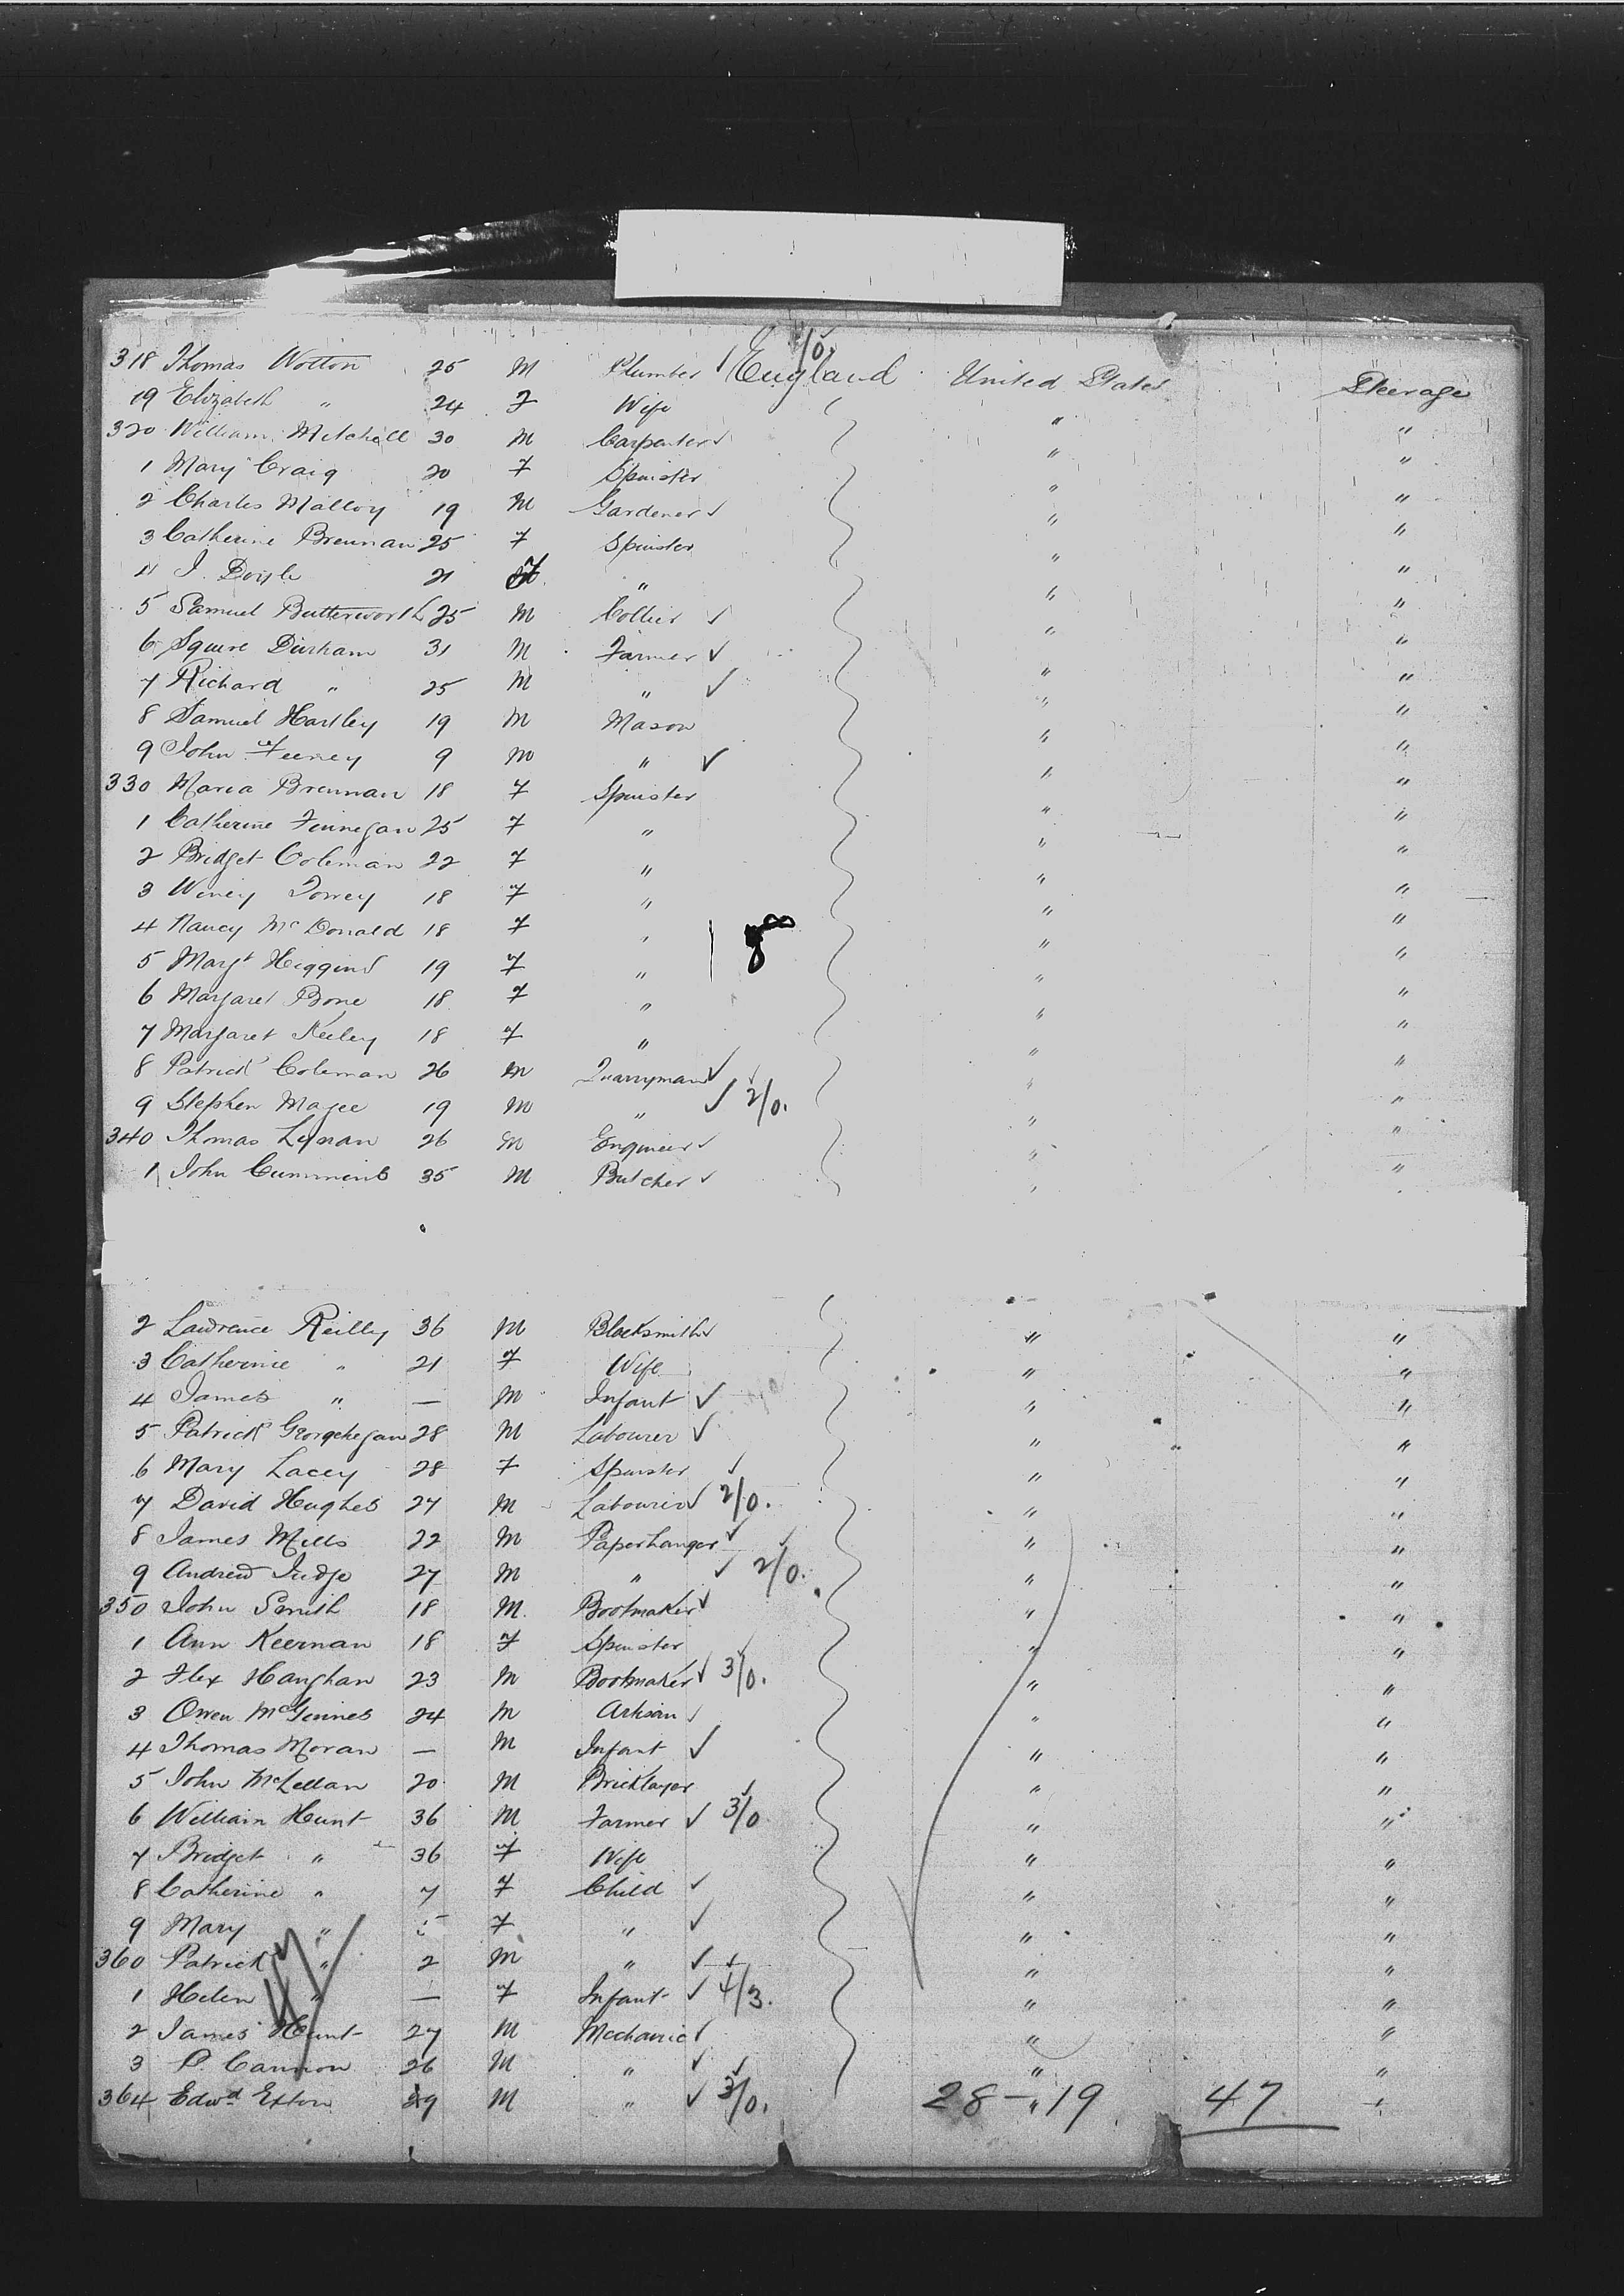 1/0.
318 Thomas Wotton 25 M Plumber England United States Steerage
19 Elizabeth " 24 F Wife " "
320 William Mitchell 30 M Carpenter " "
1 Mary Craig 20 F Spinster " "
2 Charles Malloy 19 M Gardener " "
3 Catherine Brennan 25 F Spinster " "
4 J. Doyle 21 F " " "
5 Samuel Butterworth 25 M Collier " "
6 Squire Durham 31 M Farmer " "
7 Richard " 25 M " " "
8 Samuel Hartley 19 M Mason " "
9 John Feeney 9 M " " "
330 Maria Brennan 18 F Spinster " "
1 Catherine Finnegan 25 F " " "
2 Bridget Coleman 22 F " " "
3 Winey 18 F " " "
4 Nancy McDonald 18 F " " "
5 Margt Higgins 19 F " " "
6 Margaret Bone 18 F " " "
7 Margaret Keeley 18 F " " "
8 Patrick Coleman 26 M Quarryman " "
9 Stephen Magee 19 M " 2/0. " "
340 Thomas 26 M Engineer " "
1 John Cummins 35 M Butcher " "
2 Lawrence Reilly 36 M Blacksmith " "
3 Catherine " 21 F Wife " "
4 James " — M Infant " "
5 Patrick Georgehegan 28 M Labourer " "
6 Mary Lacey 28 F Spinster " "
7 David Hughes 27 M Labourer 2/0. " "
8 James Mills 22 M Paperhanger " "
9 Andrew Judge 27 M " 2/0. " "
350 John Smith 18 M. Bootmaker " "
1 Ann Keernan 18 F Spinster " "
2 Alex Haughan 23 M Bootmaker 3/0. " "
3 Owen McGinnes 24 M Artisan " "
4 Thomas Moran — M Infant " "
5 John McLellan 20 M Bricklayer " "
6 William Hunt 36 M Farmer 3/0 " "
7 Bridget " 36 F Wife " "
8 Catherine " 7 F Child " "
9 Mary " 5 F " " "
360 Patrick " 2 M " " "
1 Helen " — F Infant 4/3. " "
2 James Hunt 27 M Mechanic " "
3 P. Cannon 26 M " " "
364 Edwd Exton 29 M " 3/0. 28 — " 19 47 "